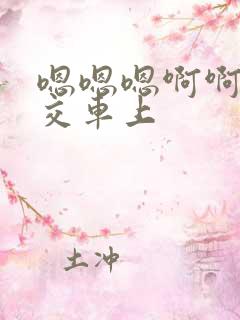 嗯嗯嗯啊啊
交车上
土冲